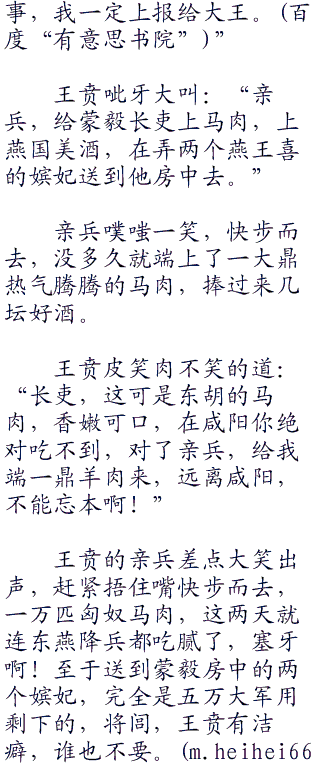 事，我一定上报给大王。(百
度“有意思书院”)”
王贲呲牙大叫：“亲
兵，给蒙毅长吏上马肉，上
燕国美酒，在弄两个燕王喜
的嫔妃送到他房中去。”
亲兵噗嗤一笑，快步而
去，没多久就端上了一大鼎
热气腾腾的马肉，捧过来几
坛好酒。
王贲皮笑肉不笑的道：
“长吏，这可是东胡的马
肉，香嫩可口，在咸阳你绝
对吃不到，对了亲兵，给我
端一鼎羊肉来，远离咸阳，
不能忘本啊！”
王贲的亲兵差点大笑出
声，赶紧捂住嘴快步而去，
一万匹匈奴马肉，这两天就
连东燕降兵都吃腻了，塞牙
啊！至于送到蒙毅房中的两
个嫔妃，完全是五万大军用
剩下的，将闾，王贲有洁
癖，谁也不要。(m.heihei66